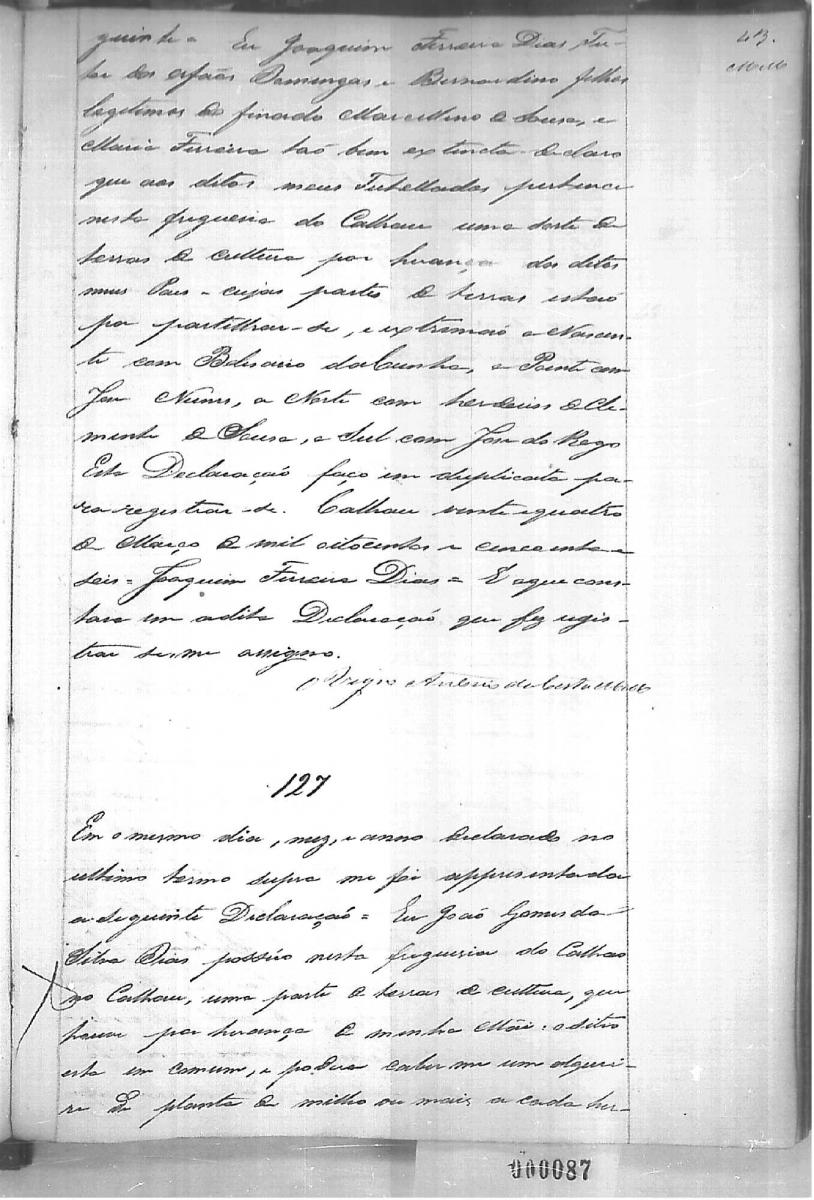 43.
Mello
guinte = Eu Joaquim Ferreira Dias Tu-
tor dos orfaõs Domingas e Bernardino filhos
legitimos do finado Marcellino de Sousa, e
Maria Ferreira taõ bem extincta declaro
que aos ditos meus Tutellados pertence
nesta freguesia do Calhau uma sorte de
terras de cultura por herança dos ditos
meus Pais = cujas partes de terras estaõ
por partilhar-se, e extremaõ a Nascen-
te com Belisario da Cunha, a Poente com
José Nunes, a Norte com herdeiros de Cle-
mente de Sousa, e Sul com José do Rego
Esta Declaraçaõ faço em duplicata pa-
ra registrar-se. Calhau vinte e quatro
de Março de mil oitocentos e cincoenta e
seis = Joaquim Ferreira Dias = E o que cons-
tava em a dita Declaraçaõ que fiz regis-
trar e me assigno.
Antonio da Costa Mello
127
Em o mesmo dia, mez, e anno declarado no
ultimo termo supra me foi appresentada
a seguinte Declaraçaõ = Eu João Gomes da
Silva Dias possúo nesta freguesia do Calhao
no Calhau, uma parte de terras de cultura, que
houve por herança de minha Mãi: o dito
esta em comum, e poderá caber me um alquei-
re de planta de milho ou mais a cada her-
000087